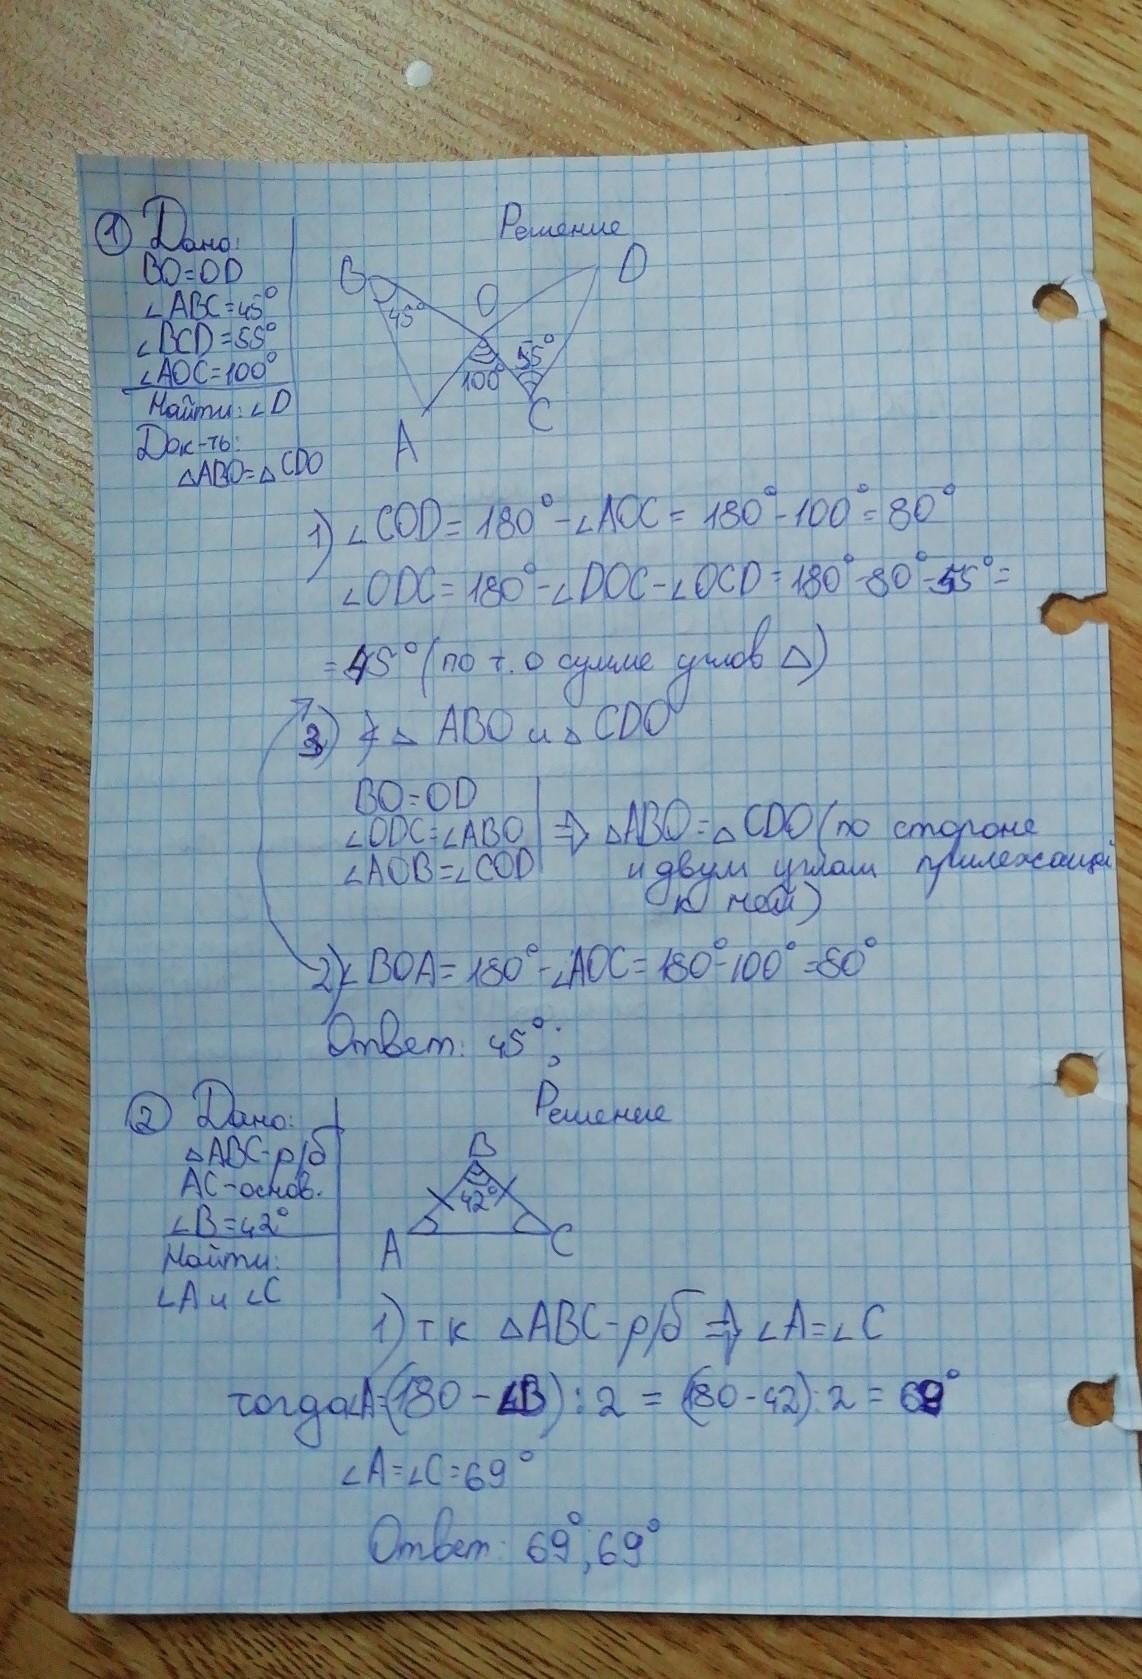 ① Дано:
BO=OD
∠ABC=45°
∠BCD=55°
∠AOC=100°
Найти: ∠D
Док-ть:
△ABO=△CDO
Решение
B
D
O
45°
55°
100°
A
C
1) ∠COD = 180° - ∠AOC = 180° - 100° = 80°
∠ODC = 180° - ∠DOC - ∠OCD = 180° - 80° - 55° =
= 45° (по т. о сумме углов △)
3) △ ABO и △ CDO
BO=OD
∠ODC=∠ABO ⇒ △ABO=△CDO (по стороне
∠AOB=∠COD и двум углам прилежащи
к ней)
2) ∠BOA = 180° - ∠AOC = 180° - 100° = 80°
Ответ: 45°;
② Дано:
△ABC-р/б
AC-основ.
∠B=42°
Найти:
∠A и ∠C
Решение
B
42°
A
C
1) тк △ABC-р/б ⇒ ∠A=∠C
тогда∠A=(180 - ∠B) : 2 = (180 - 42) : 2 = 69°
∠A=∠C=69°
Ответ: 69°; 69°